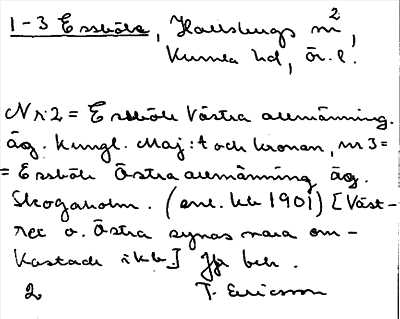 1-3 Essböle, Hallsbergs sn 2,
Kumla hd, Ör. l.
Nr 2 = Essböle Västra allmänning.
äg. Kungl. Maj:t och kronan, nr 3 =
= Essböle Östra allmänning äg.
Skogaholm. (enl. kb 1901) [Väst-
ra o. Östra synas vara om-
kastade i kb.] Jfr bebr.
2 T. Ericsson